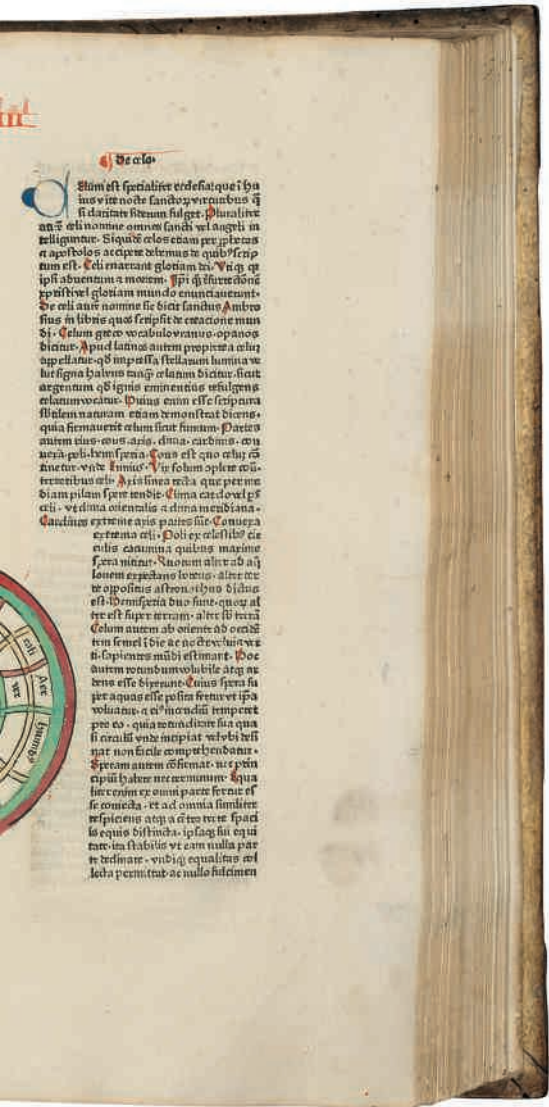 De celo.
Elum est specialiter ecclesia: que ī hu
ius vite nocte sanctoꝝ virtutibus q̄
si claritate siderum fulget. Pluraliter
autē celi nomine omnes sancti vel angeli in
telliguntur. Siquidē celos etiam per ꝓphetas
⁊ apostolos accipere debemus de quibꝰ scrip
tum est. Celi enarrant gloriam dei. Vtiqꝫ qꝛ
ipsi aduentum ⁊ mortem.
xpristi vel gloriam mundo enunciauerunt.
De celi autē nomine sic dicit sanctus Ambro
sius in libris quos scripsit de creacione mun
di. Celum greco vocabulo vranus. opanos
dicitur. Apud latinos autem propterea celuȝ
appellatur. qd impressa stellarum lumina ve
lut signa habens tanqȝ celatum dicitur. sicut
argentum qd ignis eminentius refulgens
celatum vocatur. Huius enim esse scriptura
sbtilem naturam etiam demonstrat dicens.
quia firmauerit celum sicut fumum. Partes
autem eius. cous. axis. clima. cardines. con
uexa. poli. hemisperia. Cous est quo celuȝ cō
tinetur. vnde Ennius. Vix solum oplere coū.
terroribus celi. Axis linea recta que per me
diam pilam spere tendit. Clima cardo vel ps̄
celi. vt clima orientalis ⁊ clima meridiana.
Cardines extreme axis partes sūt. Conuexa
extrema celi. Poli ex celestibꝰ cir
culis cacumina quibus maxime
spera nititur. Quorum alter ad aq̇
lonem expectans boreus. alter ter
re oppositus astronothus dictus
est. Hemisperia duo sunt. quoꝝ al
ter est super terram. alter sb̄ terrā
Celum autem ab oriente ad occidē
tem semel ī die ac nocte voluiꝯ ve
ti. sapientes mūdi estimant. Hoc
autem rotundum volubile atqȝ ar
dens esse dixerunt. Cuius spera su
per aquas esse posita fertur vt ip̄a
voluatur. ⁊ eiꝰ incendiū temperet
pro eo. quia rotunditate sua qua
si circulū vnde incipiat vel vbi desi
nat non facile comprehendatur.
Speram autem cōfirmat. nec prin
cipiū habere nec terminum. Equa
liter enim ex omni parte fertur es
se coniecta. et ad omnia similiter
respiciens atqȝ a cētro terre spaci
is equis distincta. ipsaqȝ sui equi
tate. ita stabilis vt eam nulla par
te declinare. vndiqȝ equalitas col
lecta permittat ac nullo fulcimen
celi
Aer
ver
humidꝰ